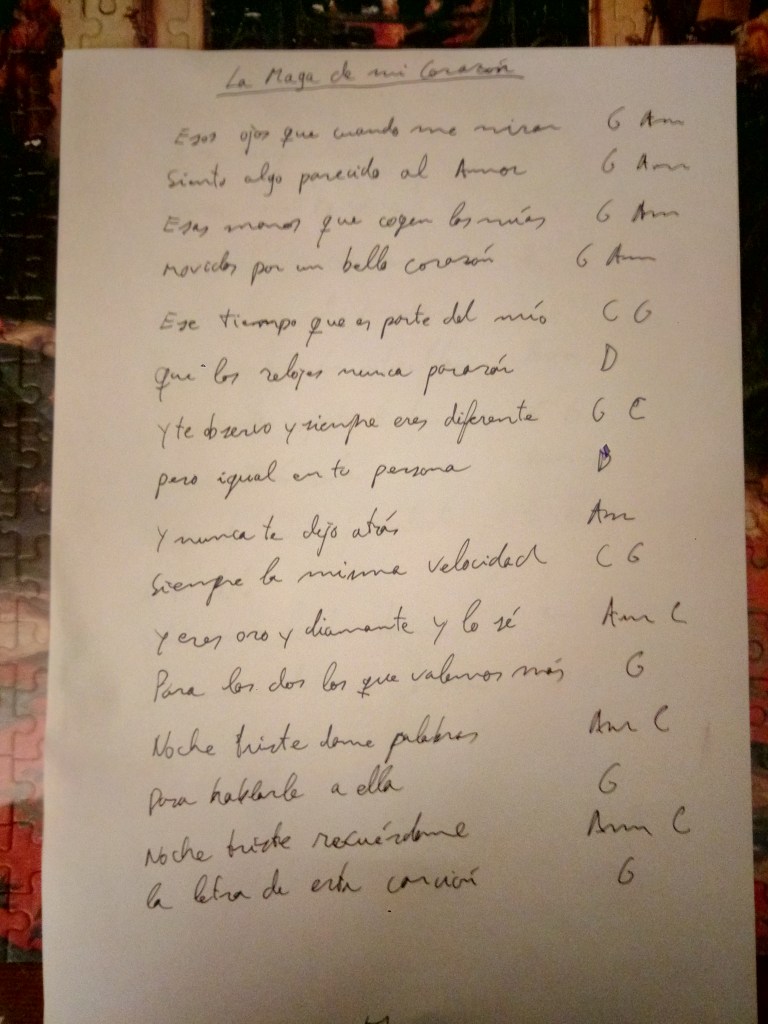 La Maga de mi Corazón
Esos ojos que cuando me miran G Am
Siento algo parecido al Amor G Am
Esas manos que cogen las mías G Am
Movidas por un bello corazón G Am
Ese tiempo que es parte del mío C G
que los relojes nunca pararán D
Y te observo y siempre eres diferente G C
pero igual en tu persona D
Y nunca te dejo atrás Am
Siempre la misma velocidad C G
Y eres oro y diamante y lo sé Am C
Para los dos los que valemos más G
Noche triste dame palabras Am C
para hablarle a ella G
Noche triste recuérdame Am C
la letra de esta canción G